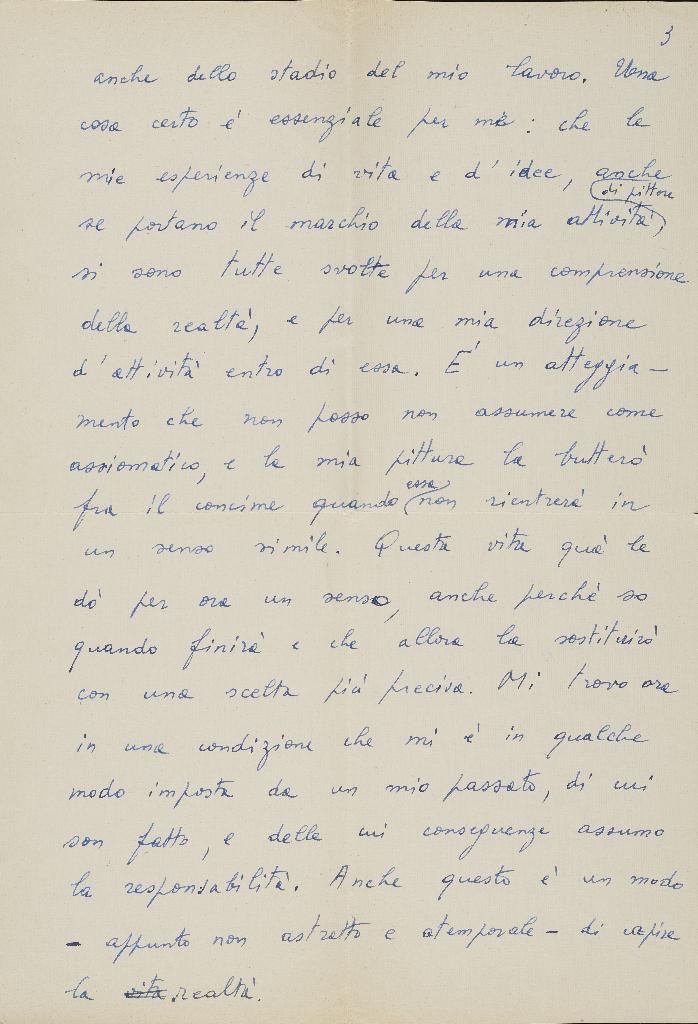 3
anche dello stadio del mio lavoro. Una
cosa certo é essenziale per me: che le
mie esperienze di vita e d'idee, anche
di pittore
se portano il marchio della mia attività,
si sono tutte svolte per una comprensione
della realtà, e per una mia direzione
d'attività entro di essa. E' un atteggia-
mento che non posso non assumere come
assiomatico, e la mia pittura la butterò
essa
fra il concime quando non rientrerà in
un senso simile. Questa vita quà le
dò per ora un senso, anche perché so
quando finirà e che allora la sostituirò
con una scelta più precisa. Mi trovo ora
in una condizione che mi è in qualche
modo imposta da un mio passato, di cui
son fatto, e delle cui conseguenze assumo
la responsabilità. Anche questo è un modo
- appunto non astratto e atemporale - di capire
la vita realtà.